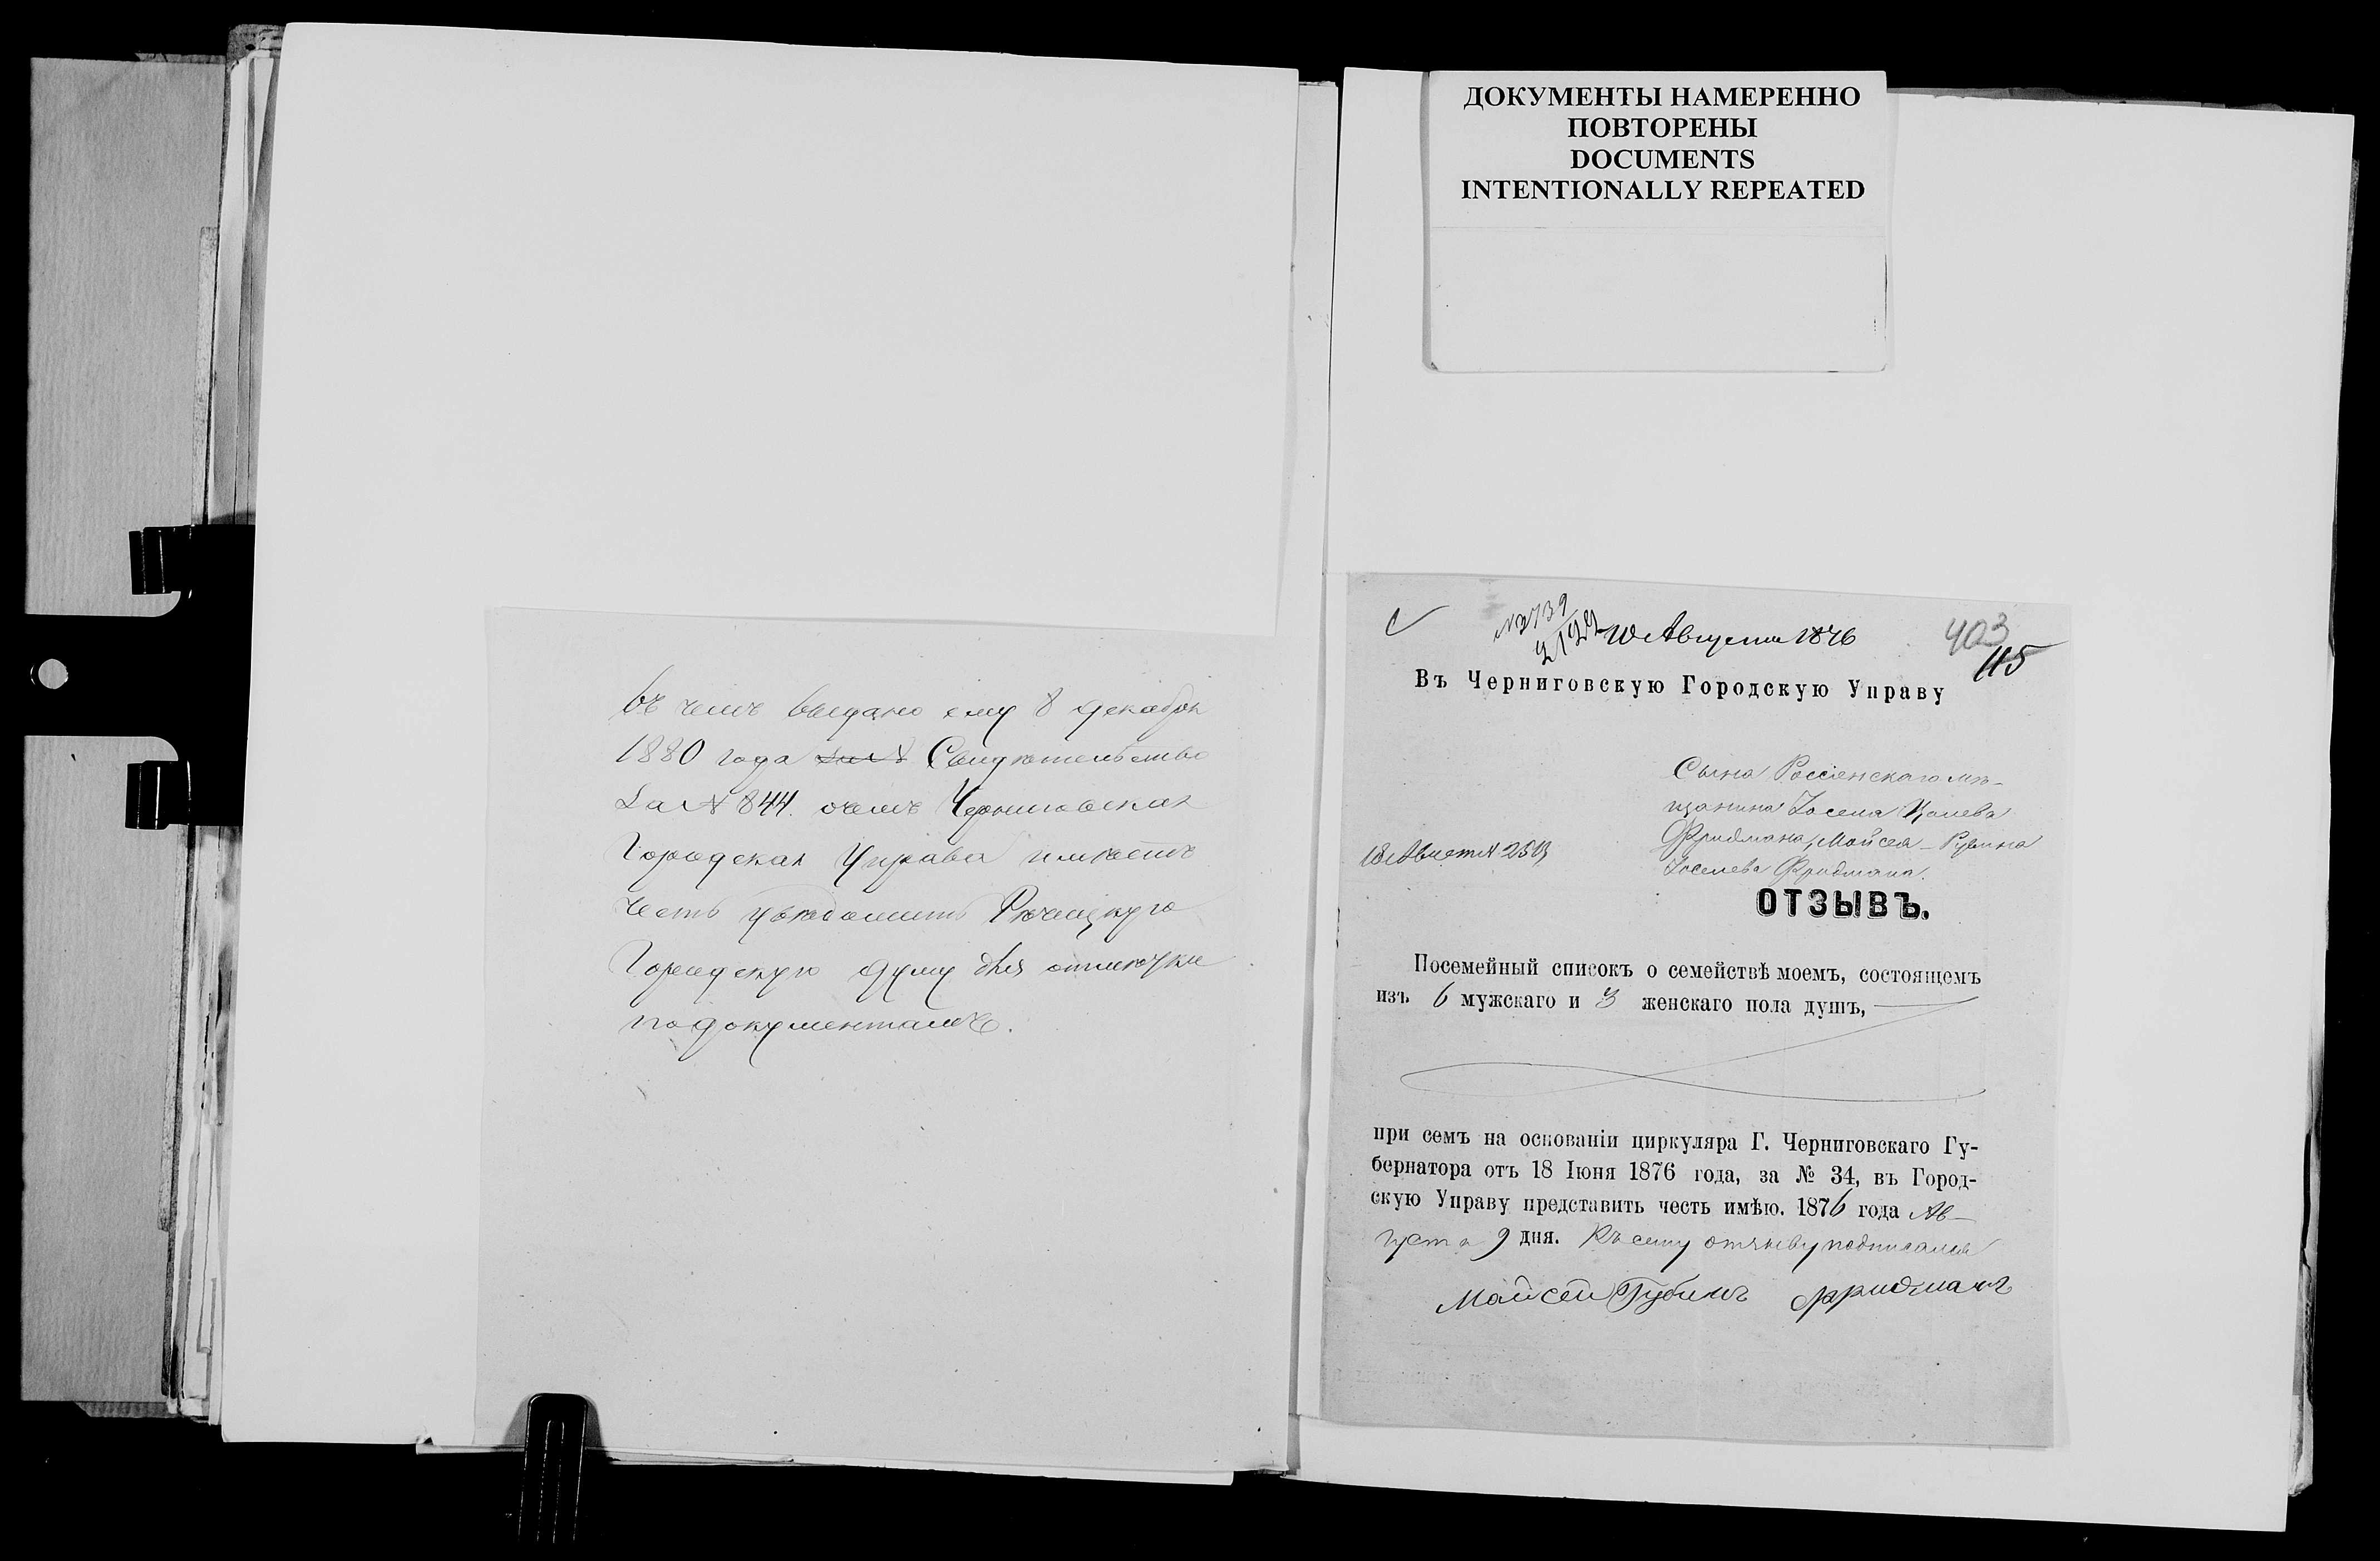 въ чемъ выдано ему 8 декабря
1880 года за № Свидѣтельство
за № 844. о чемъ Черниговская
Городская Управа имѣетъ
честь увѣдомить Рѣчицкую
Городскую Думу для отмѣтки
по документамъ.
ДОКУМЕНТЫ НАМЕРЕННО
ПОВТОРЕНЫ
DOCUMENTS
INTENTIONALLY REPEATED
№ 2739
10 Августа 1876
403
115
Въ Черниговскую Городскую Управу
Сына Россіенскаго мѣ-
щанина Іосела
Фридмана, Мойсея-Рувина
Іоселева Фридмана.
18 Август №
ОТЗЫВЪ.
Посемейный списокъ о семействѣ моемъ, состоящемъ
изъ 6 мужскаго и 3 женскаго пола душъ,
при семъ на основаніи циркуляра Г. Черниговскаго Гу-
бернатора отъ 18 Іюня 1876 года, за № 34, въ Город-
скую Управу представить честь имѣю. 1876 года Ав-
густа 9 дня. Къ сему отзыву подписался
Мойсей Фридманъ